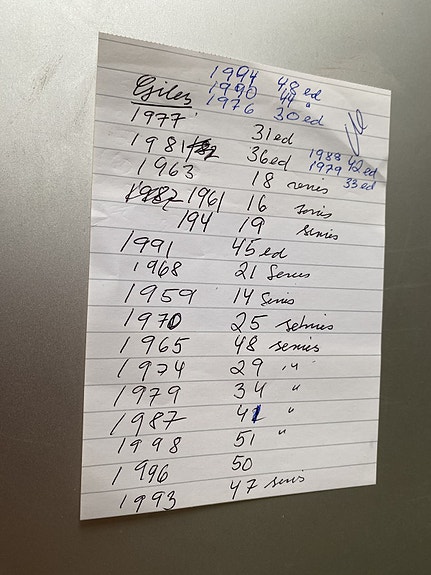 1994 48 ed
1990 44 "
1976 30 ed
Giles
1977 31 ed
1981 36 ed 1988 42 ed
1979 33 ed
1963 18 series
1961 16 series
194 19 series
1991 45 ed
1968 21 Series
1959 14 Series
1970 25 setnies
1965 48 senies
1974 29 "
1979 34 "
1987 41 "
1998 51 "
1996 50
1993 47 seris